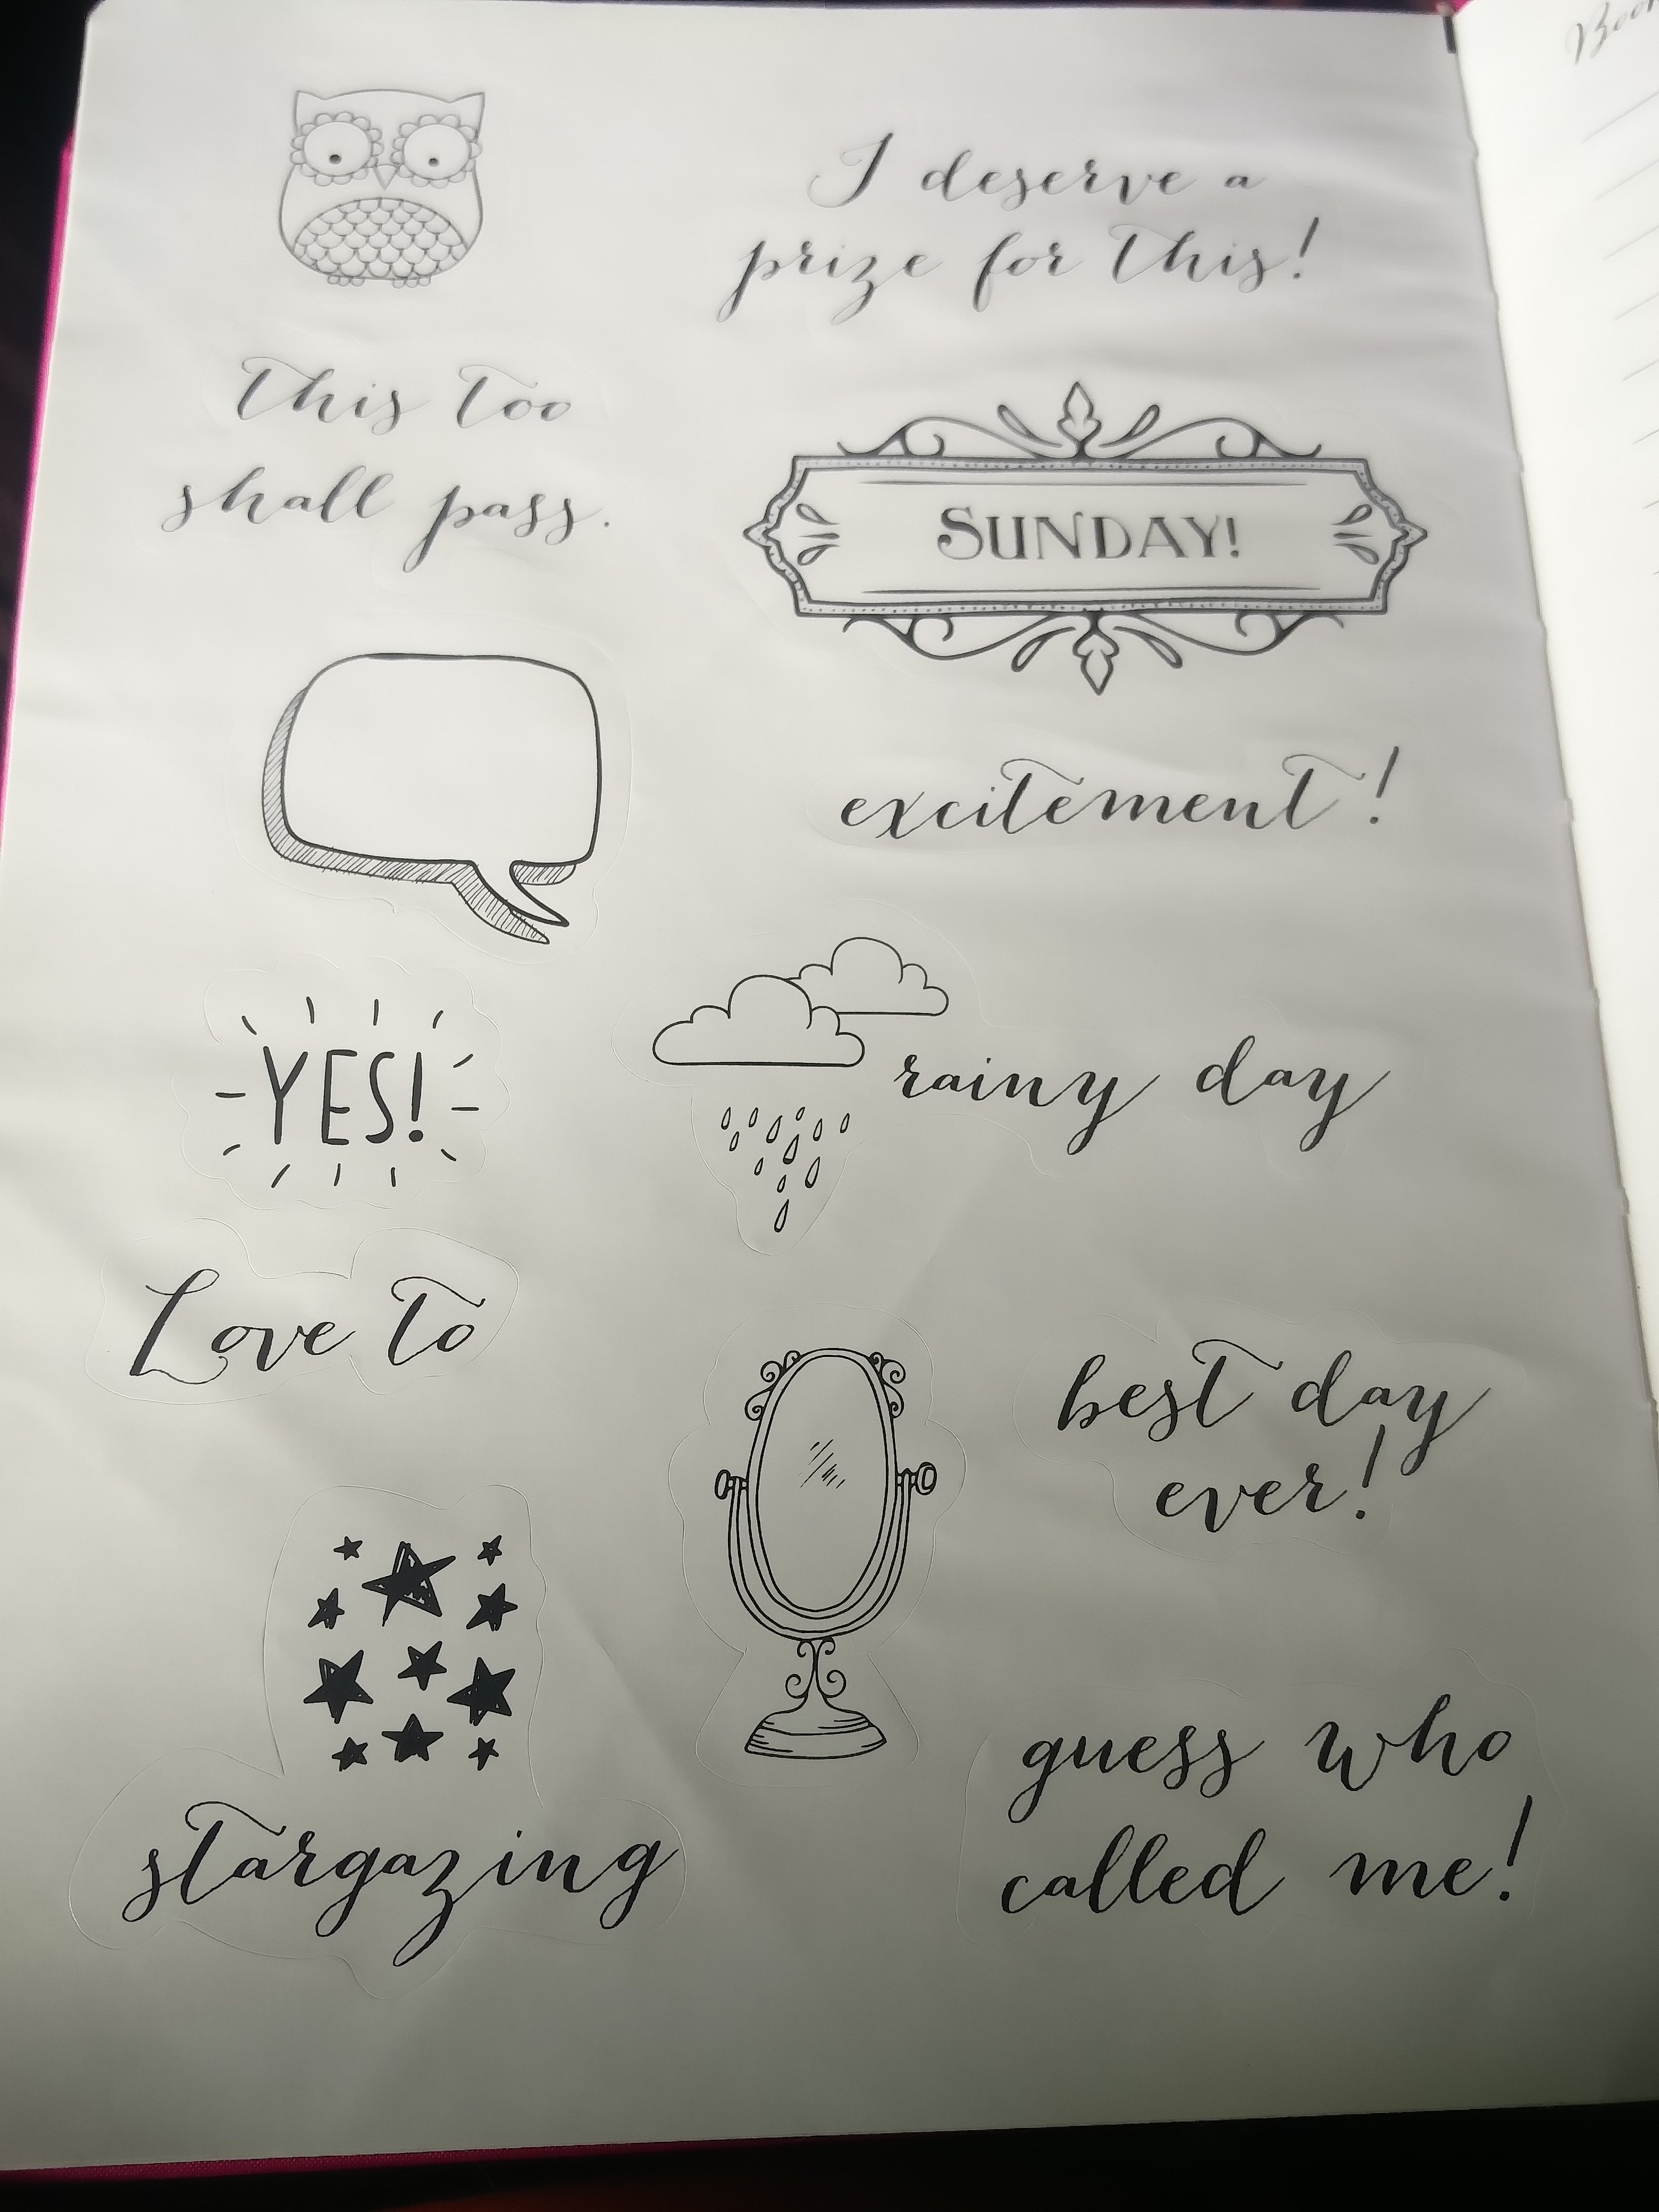 I deserve a
prize for this!
this too
shall pass.
SUNDAY!
excitement!
YES!
rainy day
Love to
best day
ever!
stargazing
guess who
called me!